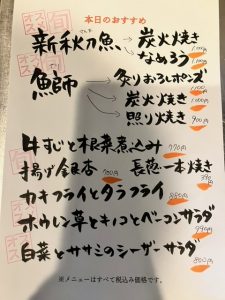 本日のおすすめ
旬 オススメ
新秋刀魚 炭火焼き 1,100円
さんま
なめろう 1,100円
鰤 炙りおろしポンズ 1,100円
炭火焼き 1,100円
照り焼き 900円
牛すじと根菜煮込み 770円
揚げ銀杏 700円 長葱一本焼き 390円
カキフライとタラフライ 880円
ホウレン草とキノコとベーコンサラダ 990円
白菜とササミのシーザーサラダ 800円
※メニューはすべて税込み価格です。